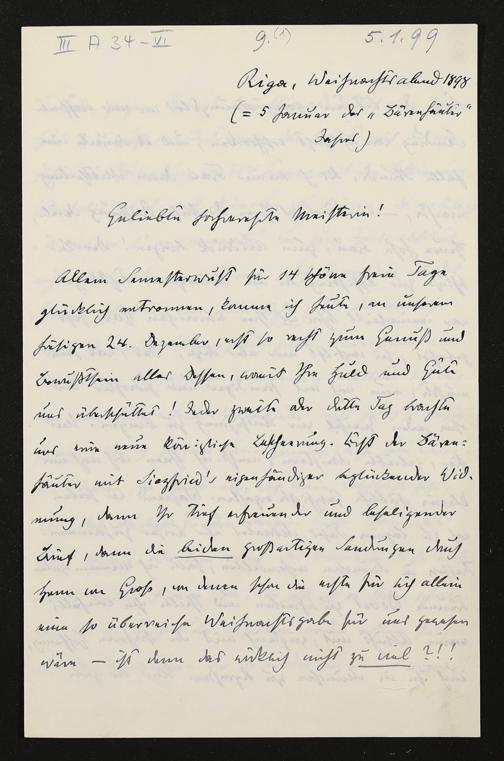 III A 34-VI 9.(1) 5.1.99
Riga, Weihnachtsabend 1898
(= 5 Januar des „Bärenhäuter"
Jahres)
Geliebte hochverehrte Meisterin!
Allem Semesterwust für 14 schöne freie Tage
glücklich entronnen, komme ich heute, an unserem
hiesigen 24. Dezember, erst so recht zum Genuß und
Bewußtsein alles dessen, womit Ihre Huld und Güte
uns überschüttet! Jeder zweite oder dritte Tag brachte
uns eine neue königliche Bescheerung. Erst der Bären-
häuter mit Siegfried's eigenhändiger beglückender Wid-
mung, dann Ihr tief erfreuender und beseligender
Brief, dann die beiden großartigen Sendungen durch
Herrn von Groß, von denen schon die erste für sich allein
eine so überreiche Weihnachtsgabe für uns gewesen
wäre – ist denn das wirklich nicht zu viel?!!